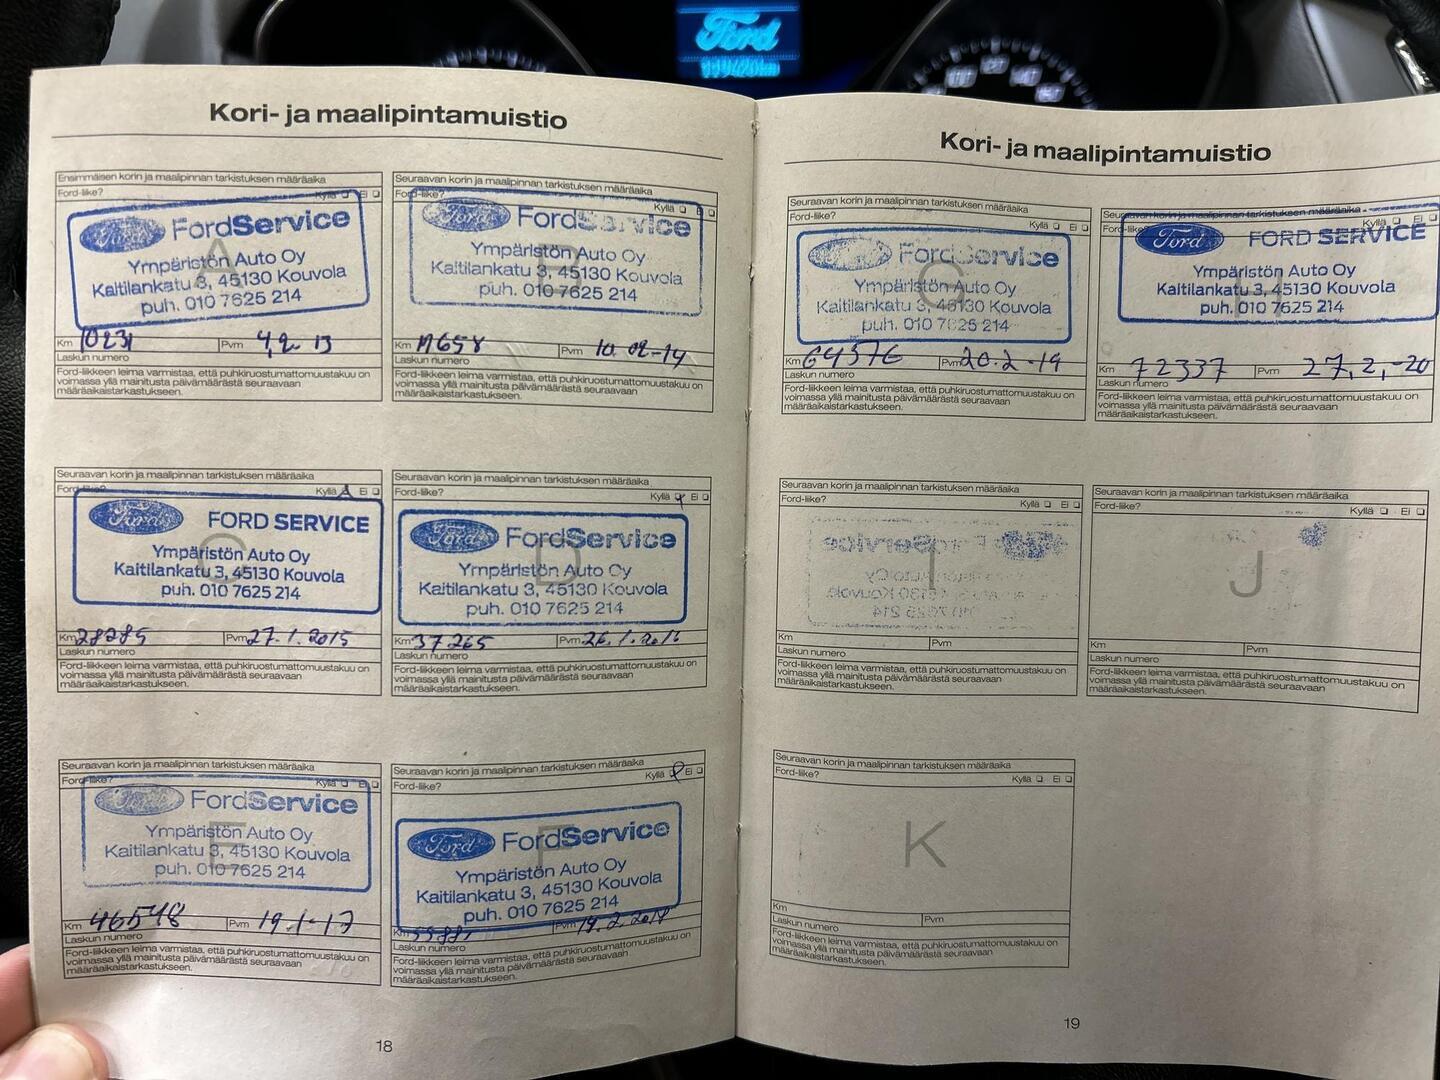 Ford
Kori- ja maalipintamuistio
Ensimmäisen korin ja maalipinnan tarkistuksen määräaika
Ford-liike?
Kyllä Ei
A
Ford FordService
Ympäristön Auto Oy
Kaitilankatu 3, 45130 Kouvola
puh. 010 7625 214
Km 10231 Pvm 4,2. 13
Laskun numero
Ford-liikkeen leima varmistaa, että puhkiruostumattomuustakuu on
voimassa yllä mainitusta päivämäärästä seuraavaan
määräaikaistarkastukseen.
Seuraavan korin ja maalipinnan tarkistuksen määräaika
Ford-liike?
Kyllä Ei
B
Ford FordService
Ympäristön Auto Oy
Kaitilankatu 3, 45130 Kouvola
puh. 010 7625 214
Km 19658 Pvm 10.02-14
Laskun numero
Ford-liikkeen leima varmistaa, että puhkiruostumattomuustakuu on
voimassa yllä mainitusta päivämäärästä seuraavaan
määräaikaistarkastukseen.
Seuraavan korin ja maalipinnan tarkistuksen määräaika
Ford-liike?
Kyllä Ei
C
Ford FORD SERVICE
Ympäristön Auto Oy
Kaitilankatu 3, 45130 Kouvola
puh. 010 7625 214
Km 28285 Pvm 27.1.2015
Laskun numero
Ford-liikkeen leima varmistaa, että puhkiruostumattomuustakuu on
voimassa yllä mainitusta päivämäärästä seuraavaan
määräaikaistarkastukseen.
Seuraavan korin ja maalipinnan tarkistuksen määräaika
Ford-liike?
Kyllä Ei
D
Ford FordService
Ympäristön Auto Oy
Kaitilankatu 3, 45130 Kouvola
puh. 010 7625 214
Km 37265 Pvm 26.1.2016
Laskun numero
Ford-liikkeen leima varmistaa, että puhkiruostumattomuustakuu on
voimassa yllä mainitusta päivämäärästä seuraavaan
määräaikaistarkastukseen.
Seuraavan korin ja maalipinnan tarkistuksen määräaika
Ford-liike?
Kyllä Ei
E
Ford FordService
Ympäristön Auto Oy
Kaitilankatu 3, 45130 Kouvola
puh. 010 7625 214
Km 46548 Pvm 19.1-17
Laskun numero
Ford-liikkeen leima varmistaa, että puhkiruostumattomuustakuu on
voimassa yllä mainitusta päivämäärästä seuraavaan
määräaikaistarkastukseen.
Seuraavan korin ja maalipinnan tarkistuksen määräaika
Kyllä Ei
Ford-liike?
F
Ford FordService
Ympäristön Auto Oy
Kaitilankatu 3, 45130 Kouvola
puh. 010 7625 214
Km Pvm 14.2.2018
Laskun numero
Ford-liikkeen leima varmistaa, että puhkiruostumattomuustakuu on
voimassa yllä mainitusta päivämäärästä seuraavaan
määräaikaistarkastukseen.
18
Kori- ja maalipintamuistio
Seuraavan korin ja maalipinnan tarkistuksen määräaika
Ford-liike?
Kyllä Ei
G
FordService
Ympäristön Auto Oy
Kaitilankatu 3, 45130 Kouvola
puh. 010 7625 214
Km 64576 Pvm 20.2-19
Laskun numero
Ford-liikkeen leima varmistaa, että puhkiruostumattomuustakuu on
voimassa yllä mainitusta päivämäärästä seuraavaan
määräaikaistarkastukseen.
Seuraavan korin ja maalipinnan tarkistuksen määräaika
Ford-liike?
Kyllä Ei
H
Ford FORD SERVICE
Ympäristön Auto Oy
Kaitilankatu 3, 45130 Kouvola
puh. 010 7625 214
Km 72337 Pvm 27,2,-20
Laskun numero
Ford-liikkeen leima varmistaa, että puhkiruostumattomuustakuu on
voimassa yllä mainitusta päivämäärästä seuraavaan
määräaikaistarkastukseen.
Seuraavan korin ja maalipinnan tarkistuksen määräaika
Ford-liike?
Kyllä Ei
I
Km Pvm
Laskun numero
Ford-liikkeen leima varmistaa, että puhkiruostumattomuustakuu on
voimassa yllä mainitusta päivämäärästä seuraavaan
määräaikaistarkastukseen.
Seuraavan korin ja maalipinnan tarkistuksen määräaika
Ford-liike?
Kyllä Ei
J
Km Pvm
Laskun numero
Ford-liikkeen leima varmistaa, että puhkiruostumattomuustakuu on
voimassa yllä mainitusta päivämäärästä seuraavaan
määräaikaistarkastukseen.
Seuraavan korin ja maalipinnan tarkistuksen määräaika
Ford-liike?
Kyllä Ei
K
Km Pvm
Laskun numero
Ford-liikkeen leima varmistaa, että puhkiruostumattomuustakuu on
voimassa yllä mainitusta päivämäärästä seuraavaan
määräaikaistarkastukseen.
19